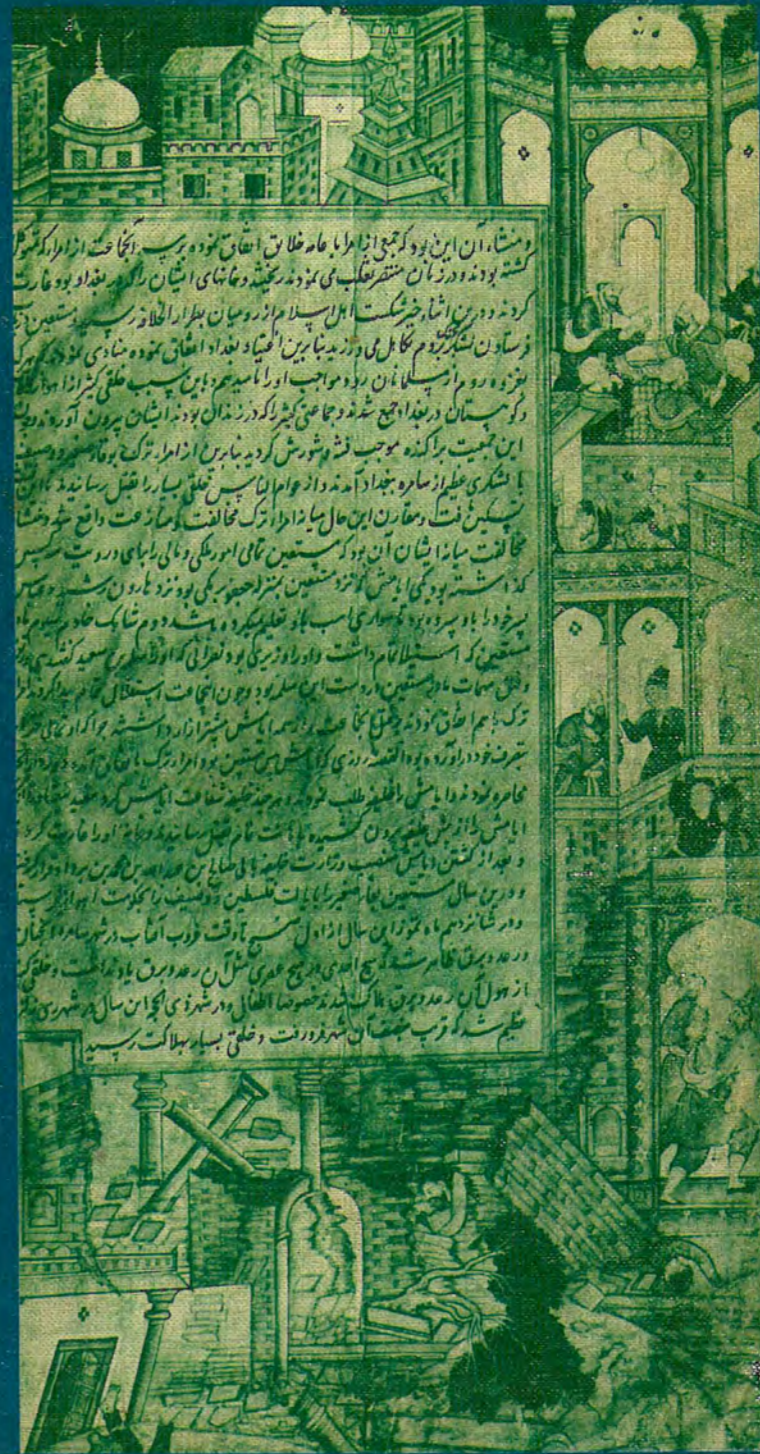 و منشاء آن این بود که جمعی از امرا با عامه خلایق اتفاق نموده بر سر آنجماعت از امرا که متوکل
کشته بودند و در زمان منتصر تغلب می نمودند ریختند و خانهای ایشان را که در بغداد بود غارت
کردند و درین اثنا خبر شکست اهل اسلام از رومیان بدار الخلافه رسید و مستعین در
فرستادن لشکر بروم تکاسل می ورزید بنابرین بغداد اتفاق نموده منادی نمودند که هرکه
بغزوه روم از مسلمانان رود مواجب او را ما میدهیم و باین سبب خلقی کثیر از اهواز
و کوهستان در بغداد جمع شدند و جماعتی کثیر را که در زندان بودند ایشان بیرون آوردند
این جمعیت پراکنده موجب فتنه و شورش کردید بنابرین از امرا ترک بوغا و صغیر و وصیف
با لشکری عظیم از سامره ببغداد آمدند و از عوام الناس خلقی بسیار را بقتل رسانیدند تا این
تسکین یافت و مقارن این حال میانه امراء ترک مخالفت و منازعت واقع شد و منشأ
مخالفت میانه ایشان آن بود که مستعین تمامی امور ملکی و مالی را
کذاشته بود یکی اتامش که نزد مستعین بمنزله جعفر برمکی بود نزد هارون رشید و
پسر خود را باو سپرده بود تا سواری اسب باو تعلیم میکرده باشد دوم شاهک خادم سیوم مادر
مستعین که استیلا تمام داشت و او را وزیری بود نصرانی که او را سلمه بن سعید گفتندی
مهمات مادر مستعین در دست این سلمه بود و چون آنجماعت استقلالی تمام پیدا کردند
ترک با هم اتفاق نمودند و از همه اتامش بیشتر آزار داشتند چرا که او
تصرف خود در آورده بود القصه روزی که اتامش پیش مستعین بود امراء ترک باتفاق آمده
محاصره نمودند و اتامش را از خلیفه طلب نمودند و هر چند خلیفه شفاعت اتامش کرد مفید
اتامش را از پیش خلیفه بیرون کشیده باهانت تمام بقتل رسانیدند و خانه او را غارت کردند
و بعد از کشتن اتامش منصب وزارت خلیفه بابی صالح بن محمد بن یزداد قرار گرفت
و درین سال مستعین بغا صغیر را بایالت فلسطین و وصیف را بحکومت اهواز
و در شانزدهم ماه تموز این سال از اول صبح تا وقت غروب آفتاب در شهر سامره آنچنان
رعد و برق ظاهر شد که هیچ احدی در هیچ عهدی مثل آن رعد و برق یاد نداشت و خلقی
از هول آن رعد و برق هلاک شدند خصوصا اطفال و در شهر ذی الحجه این سال در شهر ری زلزله
عظیم شد که قرب نصف آن شهر فرو رفت و خلقی بسیار بهلاکت رسید